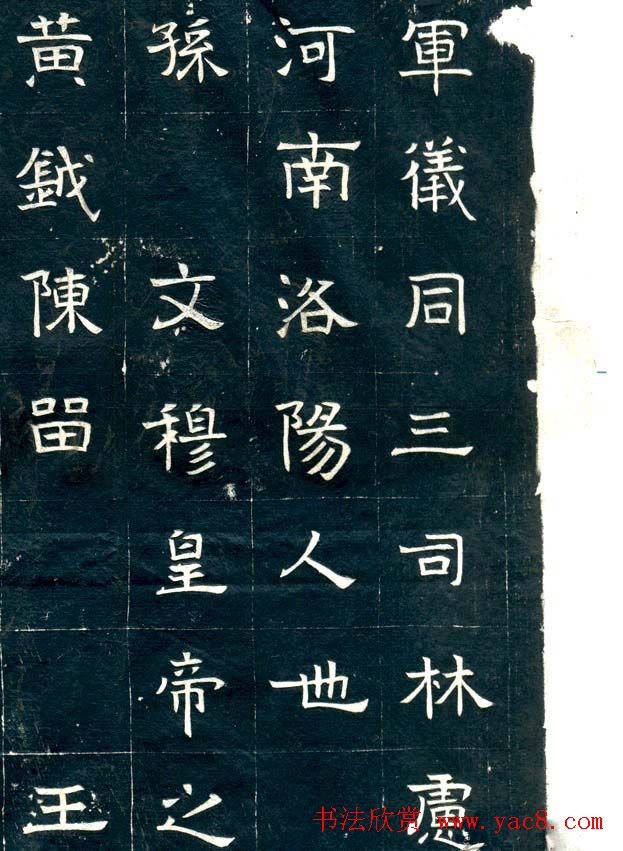 軍儀同三司林慮
河南洛陽人也
孫 文穆皇帝之
黄鉞陳㽞 王
书法欣赏 www.yac8.com